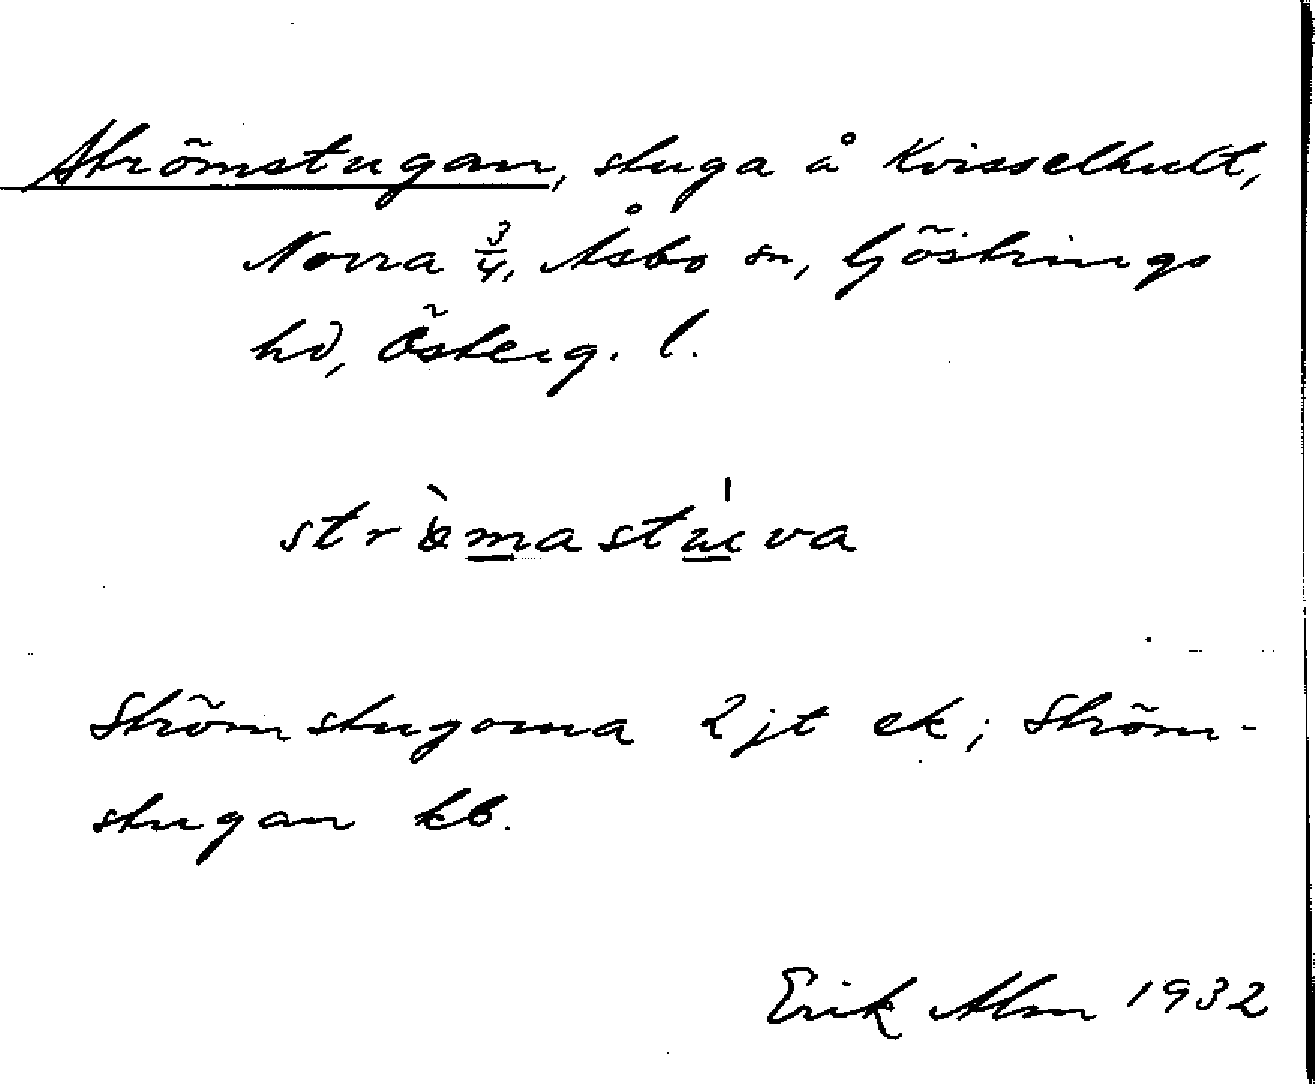 Strömstugan, stuga å Kvisselhult,
Norra 3/4, Åsbo sn, Göstrings
hd, Österg. l.
strömastuva
Strömstugorna 2 jt ek; Ström-
stugan kb.
Erik Alm 1932